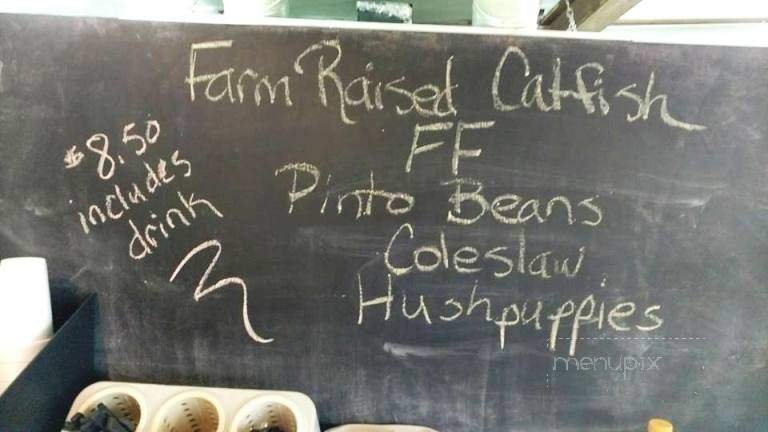 Farm Raised Catfish
FF
Pinto Beans
Coleslaw
Hushpuppies
$8.50
includes
drink
menupix